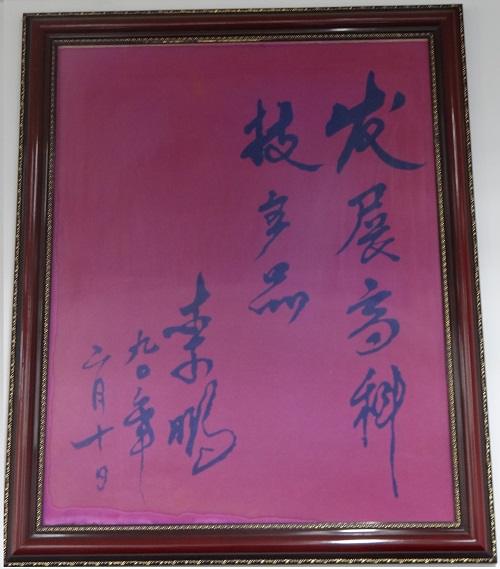 发展高科
技产品
李鹏
九〇年
二月十日